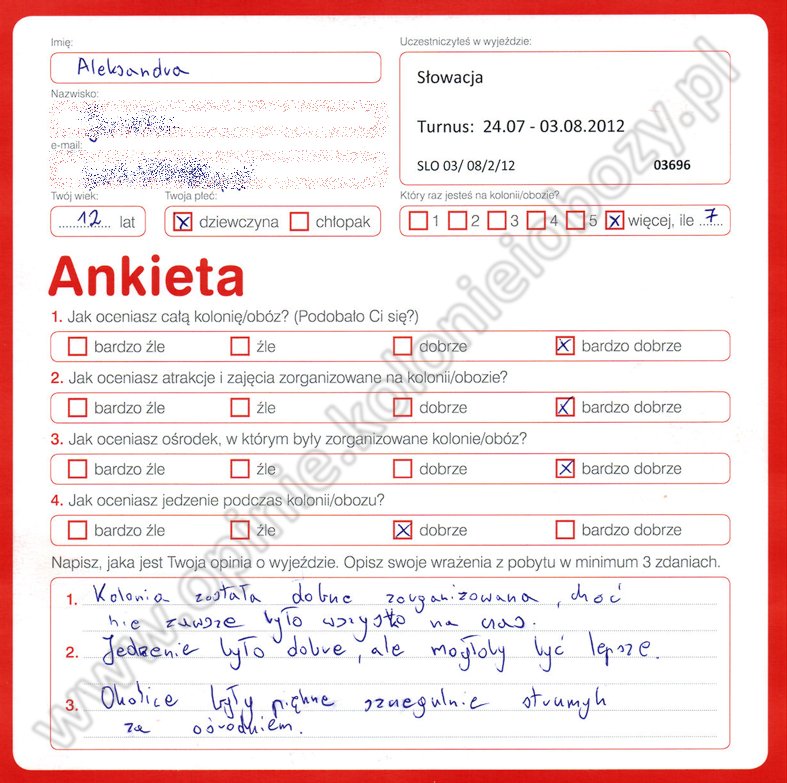 Imię:
Aleksandra
Nazwisko:
e-mail:
Twój wiek:
12 lat
Twoja płeć:
x dziewczyna chłopak
Uczestniczyłeś w wyjeździe:
Słowacja
Turnus: 24.07 - 03.08.2012
SLO 03/ 08/2/12 03696
Który raz jesteś na kolonii/obozie?
1 2 3 4 5 x więcej, ile 7
Ankieta
1. Jak oceniasz całą kolonię/obóz? (Podobało Ci się?)
bardzo źle źle dobrze x bardzo dobrze
2. Jak oceniasz atrakcje i zajęcia zorganizowane na kolonii/obozie?
bardzo źle źle dobrze x bardzo dobrze
3. Jak oceniasz ośrodek, w którym były zorganizowane kolonie/obóz?
bardzo źle źle dobrze x bardzo dobrze
4. Jak oceniasz jedzenie podczas kolonii/obozu?
bardzo źle źle x dobrze bardzo dobrze
Napisz, jaka jest Twoja opinia o wyjeździe. Opisz swoje wrażenia z pobytu w minimum 3 zdaniach.
1. Kolonia została dobrze zorganizowana, choć
nie zawsze było wszystko na czas.
2. Jedzenie było dobre, ale mogłoby być lepsze.
3. Okolice były piękne szczególnie strumyk
za ośrodkiem.
www.opinie.kolonieiobozy.pl